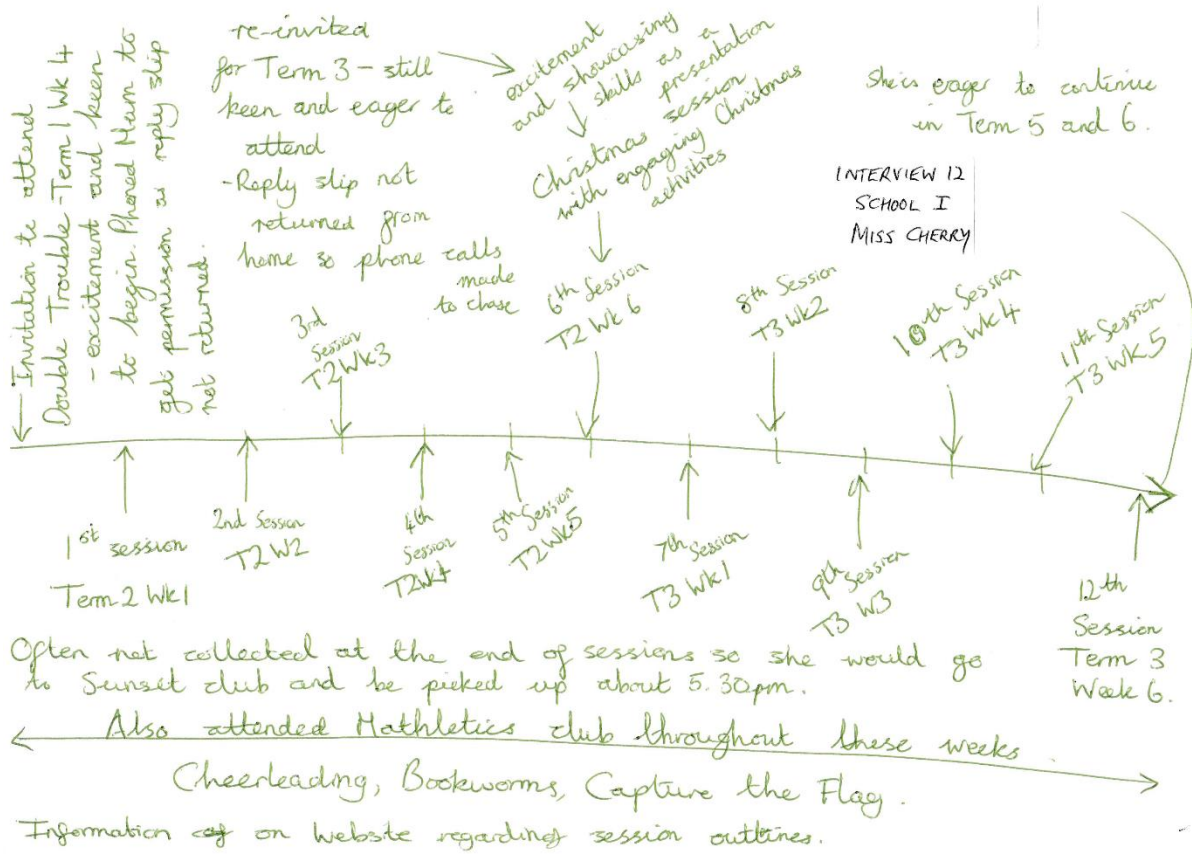 Invitation to attend
Double Trouble - Term 1 Wk 4
- excitement and keen
to begin. Phoned Mum to
get permission as reply slip
not returned.
re-invited
for Term 3 - still
keen and eager to
attend
- Reply slip not
returned from
home so phone calls
made
to chase
excitement
and showcasing
skills as a
presentation
Christmas session
with engaging Christmas
activities
She is eager to continue
in Term 5 and 6.
INTERVIEW 12
SCHOOL I
MISS CHERRY
3rd
Session
T2 Wk3
6th Session
T2 Wk 6
8th Session
T3 Wk2
10th Session
T3 Wk 4
11th Session
T3 Wk 5
1st session
Term 2 Wk1
2nd Session
T2 W2
4th
Session
T2Wk4
5th Session
T2 Wk5
7th Session
T3 Wk1
9th Session
T3 W3
12th
Session
Term 3
Week 6.
Often not collected at the end of sessions so she would go
to Sunset club and be picked up about 5.30pm.
Also attended Mathletics club throughout these weeks
Cheerleading, Bookworms, Capture the Flag.
Information on website regarding session outlines.